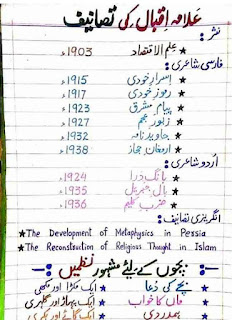 علامہ اقبال کی تصانیف
نثر:
★ علم الاقتصاد 1903ء
فارسی شاعری:
★ اسرار خودی 1915ء
★ رموز خودی 1917ء
★ پیام مشرق 1923ء
★ زبور عجم 1927ء
★ جاوید نامہ 1932ء
★ ارمغان حجاز 1938ء
اردو شاعری:
★ بانگ درا 1924ء
★ بال جبریل 1935ء
★ ضرب کلیم 1936ء
انگریزی تصانیف:
★The Development of Metaphysics in Persia
★The Reconstruction of Religious Thought in Islam
بچوں کے لیئے مشہور نظمیں
★ بچے کی دعا ★ ایک مکڑا اور مکھی
★ ماں کا خواب ★ ایک پہاڑ اور گلہری
★ ہمدردی ★ ایک گائے اور بکری